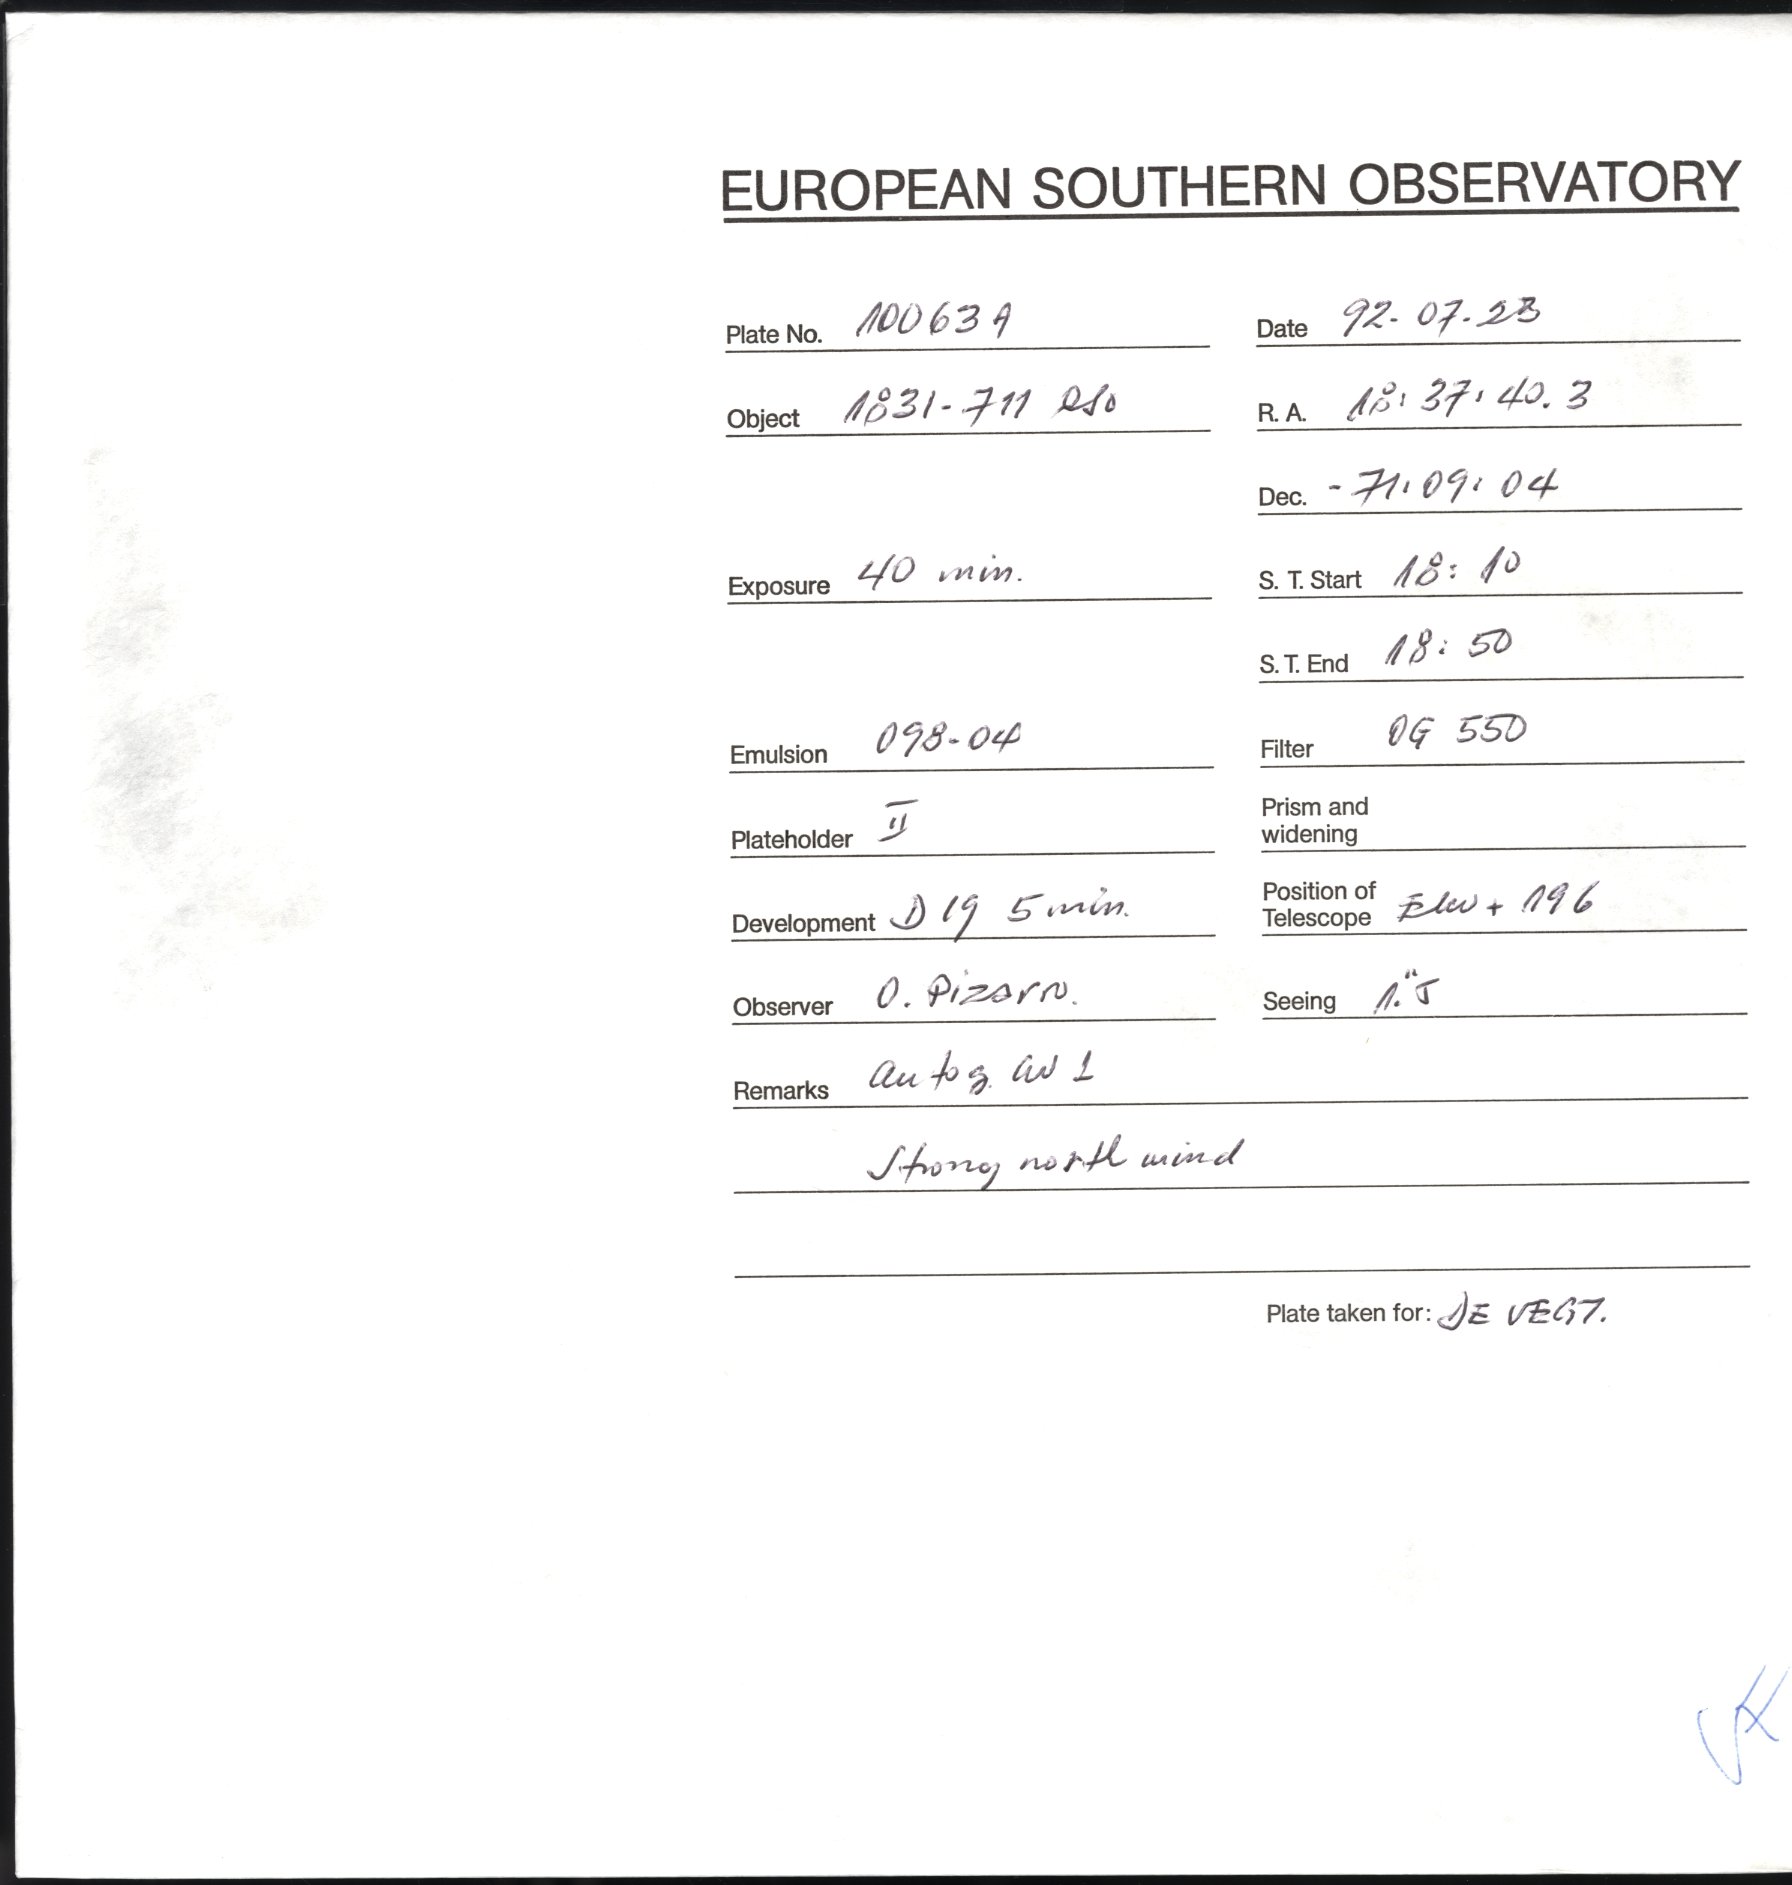 EUROPEAN SOUTHERN OBSERVATORY
Plate No. 10063A Date 92-07-23
Object 1831-711 QSO R. A. 18:37:40.3
Dec. -71:09:04
Exposure 40 min. S. T. Start 18:10
S. T. End 18:50
Emulsion 098-04 Filter OG 550
Plateholder II Prism and
widening
Development D19 5 min. Position of
Telescope + 196
Observer O. Pizarro. Seeing 1."5
Remarks autog. 1
Strong north wind
Plate taken for: DE VEGT.